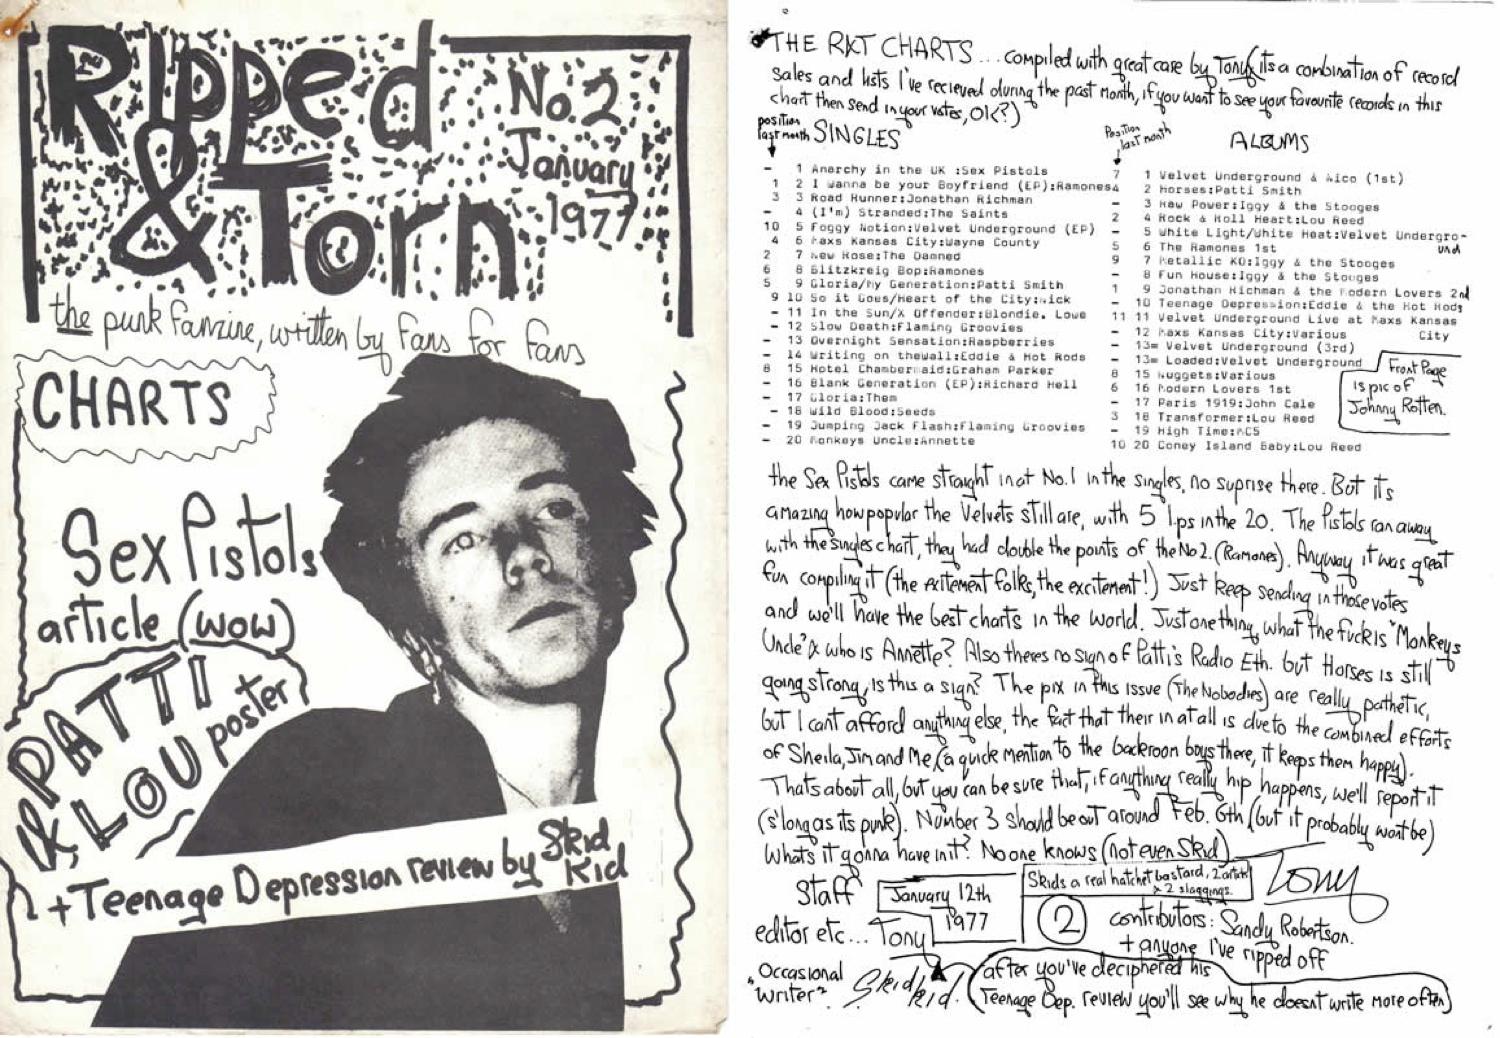 Ripped
& Torn
No. 2
January
1977
the punk fanzine, written by fans for fans
CHARTS
Sex Pistols
article (WOW)
PATTI
& LOU poster
+ Teenage Depression review by Skid Kid
THE R&T CHARTS... compiled with great care by Tony (its a combination of record
sales and lists I've recieved during the past month, if you want to see your favourite records in this
chart then send in your votes, OK?)
position last month SINGLES
- 1 Anarchy in the UK :Sex Pistols
1 2 I wanna be your Boyfriend (EP):Ramones
3 3 Road Runner:Jonathan Richman
- 4 (I'm) Stranded:The Saints
10 5 Foggy Notion:Velvet Underground (EP)
4 6 Maxs Kansas City:Wayne County
2 7 New Rose:The Damned
6 8 Blitzkreig Bop:Ramones
5 9 Gloria/My Generation:Patti Smith
9 10 So it Goes/Heart of the City:Nick Lowe
- 11 In the Sun/X Offender:Blondie.
- 12 Slow Death:Flaming Groovies
- 13 Overnight Sensation:Raspberries
- 14 Writing on thewall:Eddie & Hot Rods
8 15 Hotel Chambermaid:Graham Parker
- 16 Blank Generation (EP):Richard Hell
- 17 Gloria:Them
- 18 Wild Blood:Seeds
- 19 Jumping Jack Flash:Flaming Groovies
- 20 Monkeys Uncle:Annette
Position last month ALBUMS
7 1 Velvet Underground & Nico (1st)
4 2 Horses:Patti Smith
- 3 Raw Power:Iggy & the Stooges
2 4 Rock & Roll Heart:Lou Reed
- 5 White Light/White Heat:Velvet Undergro-
und
5 6 The Ramones 1st
9 7 Metallic KO:Iggy & the Stooges
- 8 Fun House:Iggy & the Stooges
1 9 Jonathan Richman & the Modern Lovers 2nd
- 10 Teenage Depression:Eddie & the Hot Rods
11 11 Velvet Underground Live at Maxs Kansas
City
- 12 Maxs Kansas City:Various
- 13= Velvet Underground (3rd)
- 13= Loaded:Velvet Underground
8 15 Nuggets:Various
6 16 Modern Lovers 1st
- 17 Paris 1919:John Cale
3 18 Transformer:Lou Reed
- 19 High Time:MC5
10 20 Coney Island Baby:Lou Reed
Front Page
is pic of
Johnny Rotten.
the Sex Pistols came straight in at No.1 in the singles, no suprise there. But its
amazing how popular the Velvets still are, with 5 l.ps in the 20. The Pistols ran away
with the singles chart, they had double the points of the No 2. (Ramones). Anyway it was great
fun compiling it (the exitement folks, the excitement!) Just keep sending in those votes
and we'll have the best charts in the world. Just one thing, what the fuck is "Monkeys
Uncle" & who is Annette? Also theres no sign of Patti's Radio Eth. but Horses is still
going strong, is this a sign? The pix in this issue (The Nobodies) are really pathetic,
but I cant afford anything else, the fact that their in at all is due to the combined efforts
of Sheila, Jim and Me (a quick mention to the backroom boys there, it keeps them happy).
Thats about all, but you can be sure that, if anything really hip happens, we'll report it
(s'long as its punk). Number 3 should be out around Feb. 6th (but it probably wont be)
What's it gonna have in it? No one knows (not even Skid)
Tony
Staff
January 12th
1977
Skids a real hatchet bastard, 2 articles
& 2 slaggings.
2
editor etc... Tony
contributors: Sandy Robertson.
+ anyone I've ripped off
"Occasional
Writer"
Skid Kid.
(after you've deciphered his
Teenage Dep. review you'll see why he doesnt write more often)